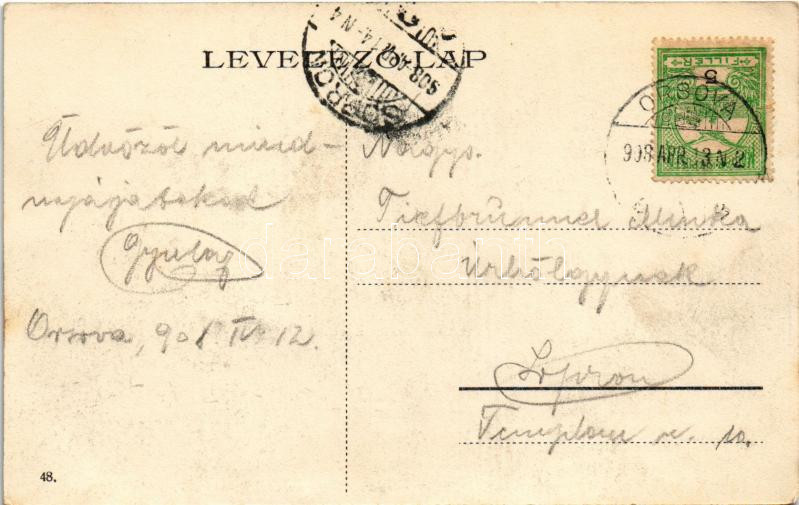 LEVELEZŐ-LAP
SOPRON
908 APR. 14. N 4
5
FILLER
ORSOVA
908 APR. 13. N. 2
Üdvözöl mind-
nyájatokat
Gyulay
Orsova, 908 IV. 12.
Nagys.
Tiefbrünner Minka
úrhölgynek
Sopron
Templom u. 10.
48.
darabanth